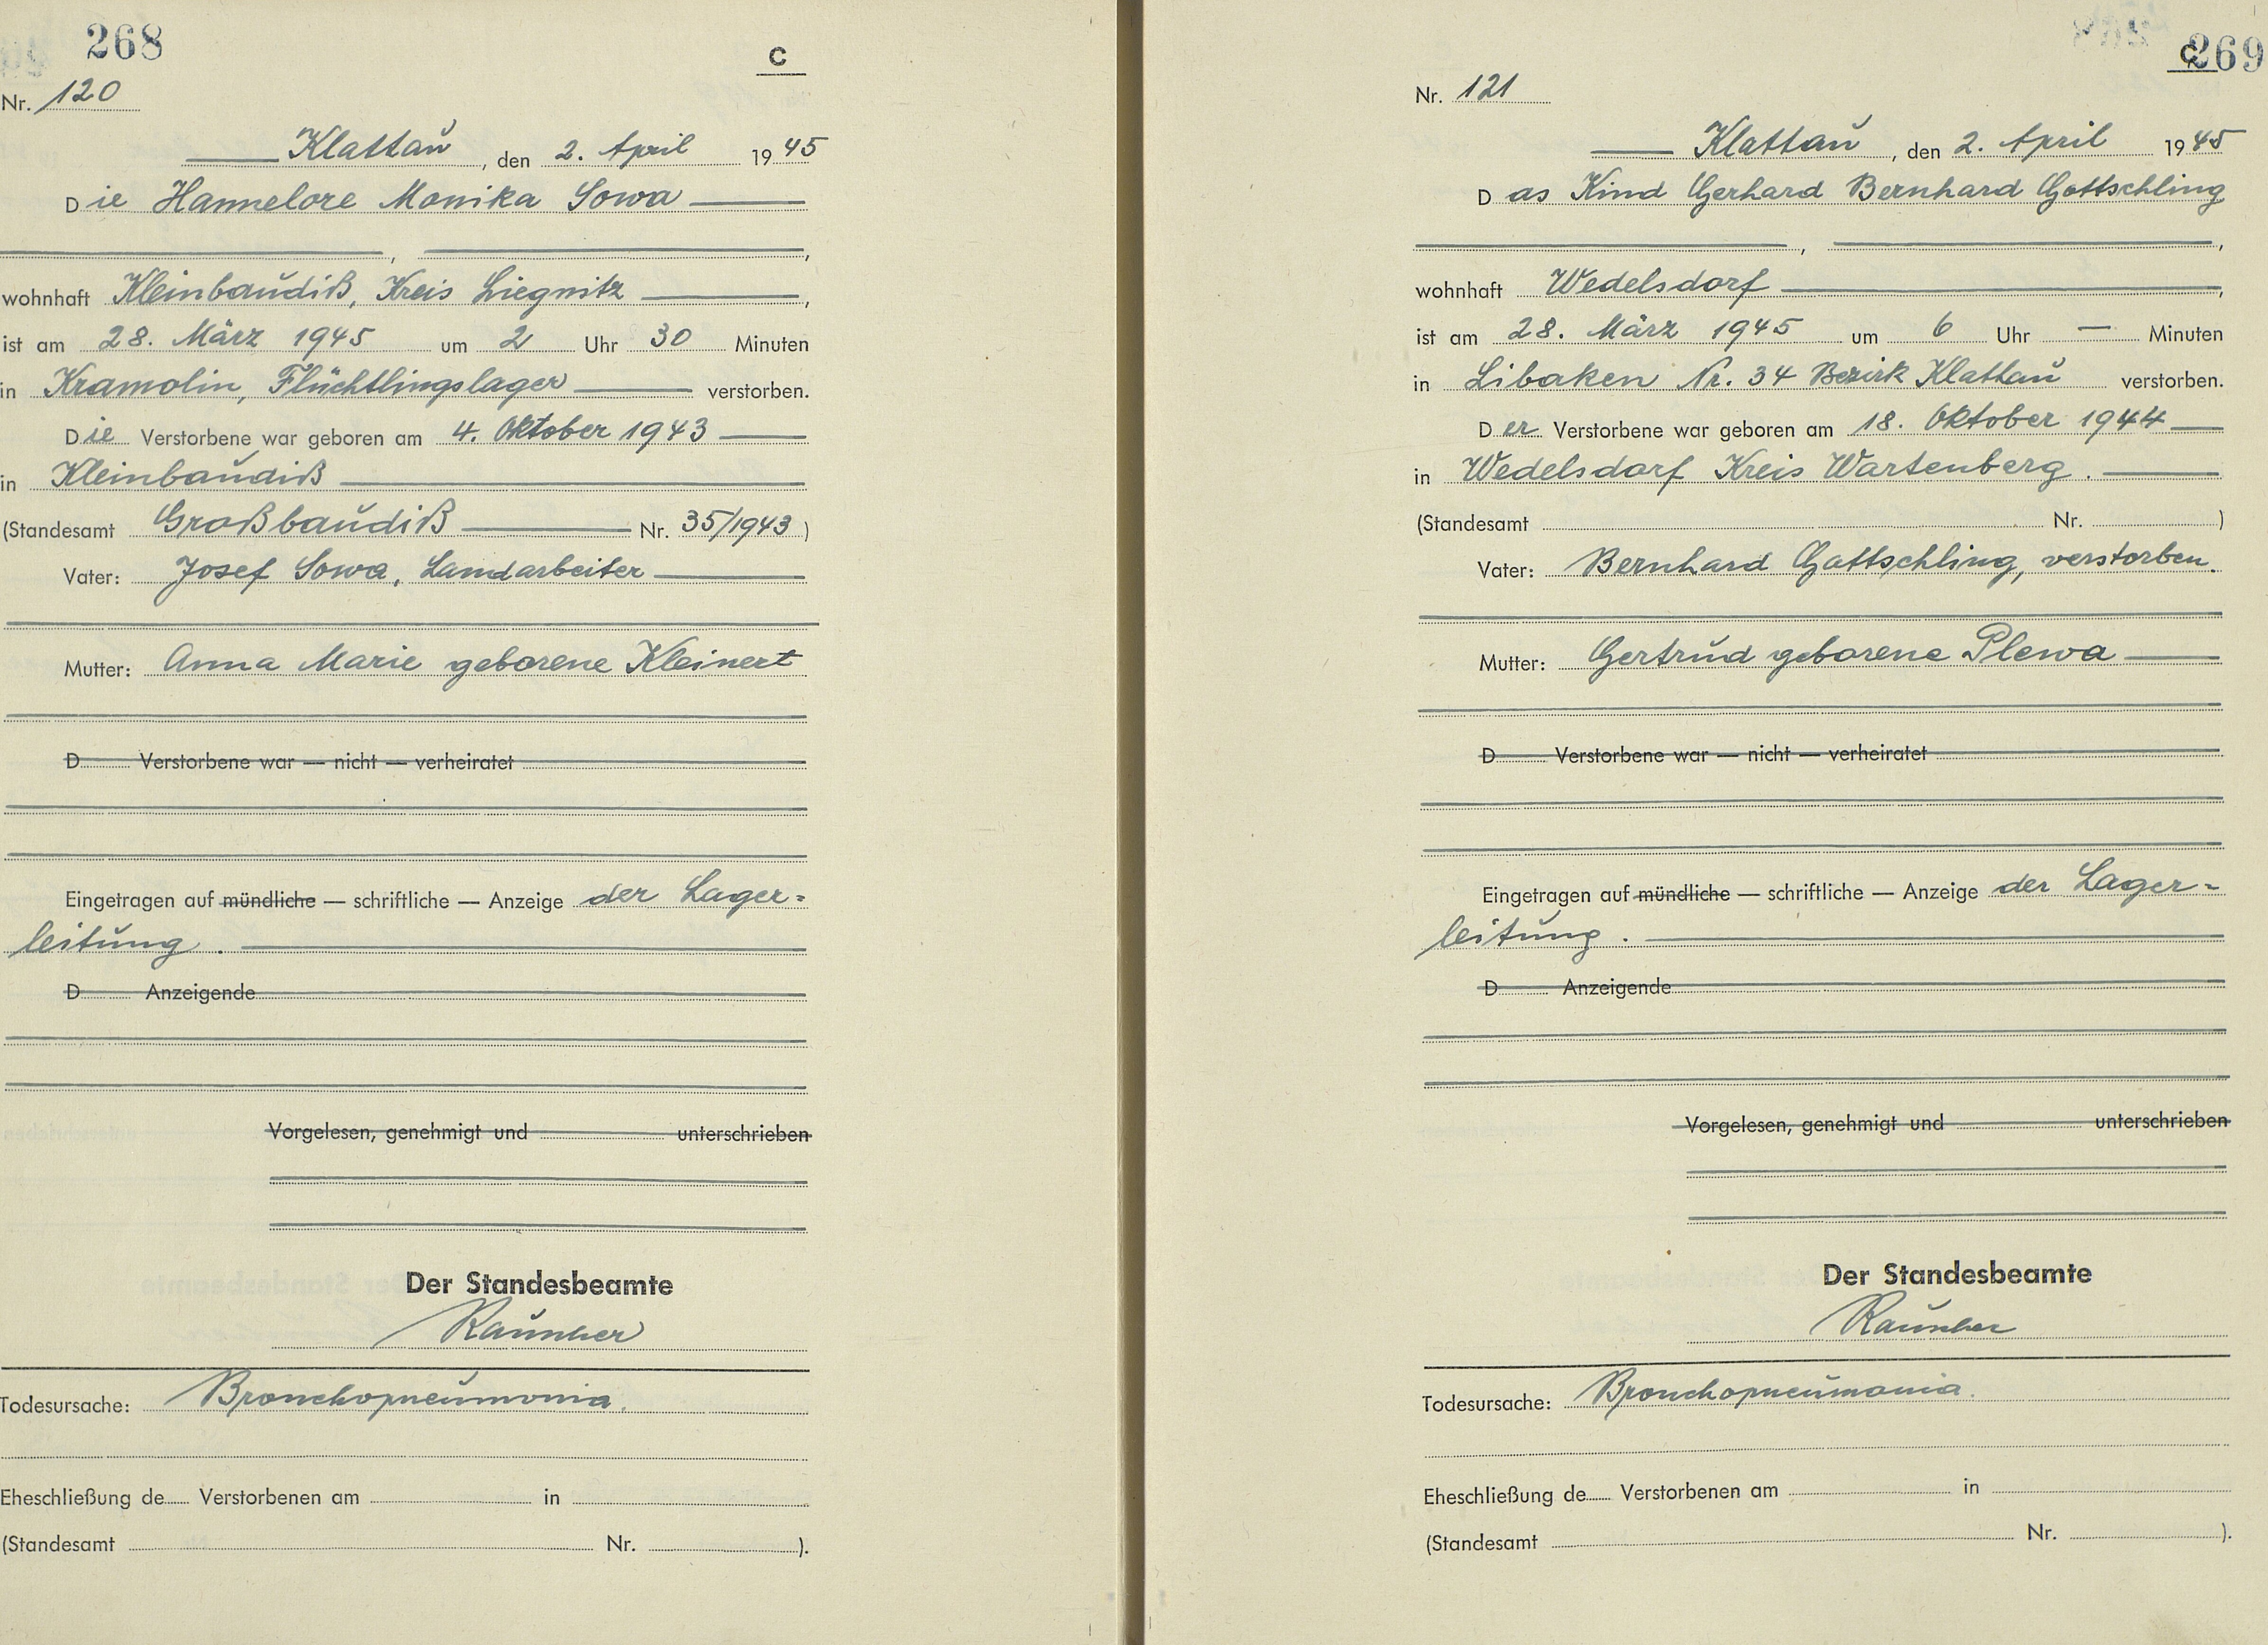 268
C
Nr. 120
Klattau, den 2. April 1945
Die Hannelore Monika Sowa
, ,
wohnhaft Kleinbaudiß, Kreis Liegnitz,
ist am 28. März 1945 um 2 Uhr 30 Minuten
in Kramolin, Flüchtlingslager verstorben.
Die Verstorbene war geboren am 4. Oktober 1943
in Kleinbaudiß
(Standesamt Großbaudiß Nr. 35/1943)
Vater: Josef Sowa, Landarbeiter
Mutter: Anna Marie geborene Kleinert
D Verstorbene war — nicht — verheiratet
Eingetragen auf mündliche — schriftliche — Anzeige der Lager=
leitung.
D Anzeigende
Vorgelesen, genehmigt und unterschrieben
Der Standesbeamte
Todesursache: Bronchopneumonia.
Eheschließung de Verstorbenen am in
(Standesamt Nr. ).
C 269
Nr. 121
Klattau, den 2. April 1945
Das Kind Gerhard Bernhard Gottschling
, ,
wohnhaft Wedelsdorf,
ist am 28. März 1945 um 6 Uhr — Minuten
in Libaken Nr. 34 Bezirk Klattau verstorben.
Der Verstorbene war geboren am 18. Oktober 1944
in Wedelsdorf Kreis Wartenberg.
(Standesamt Nr. )
Vater: Bernhard Gottschling, verstorben.
Mutter: Gertrud geborene Plewa
D Verstorbene war — nicht — verheiratet
Eingetragen auf mündliche — schriftliche — Anzeige der Lager=
leitung.
D Anzeigende
Vorgelesen, genehmigt und unterschrieben
Der Standesbeamte
Todesursache: Bronchopneumonia.
Eheschließung de Verstorbenen am in
(Standesamt Nr. ).